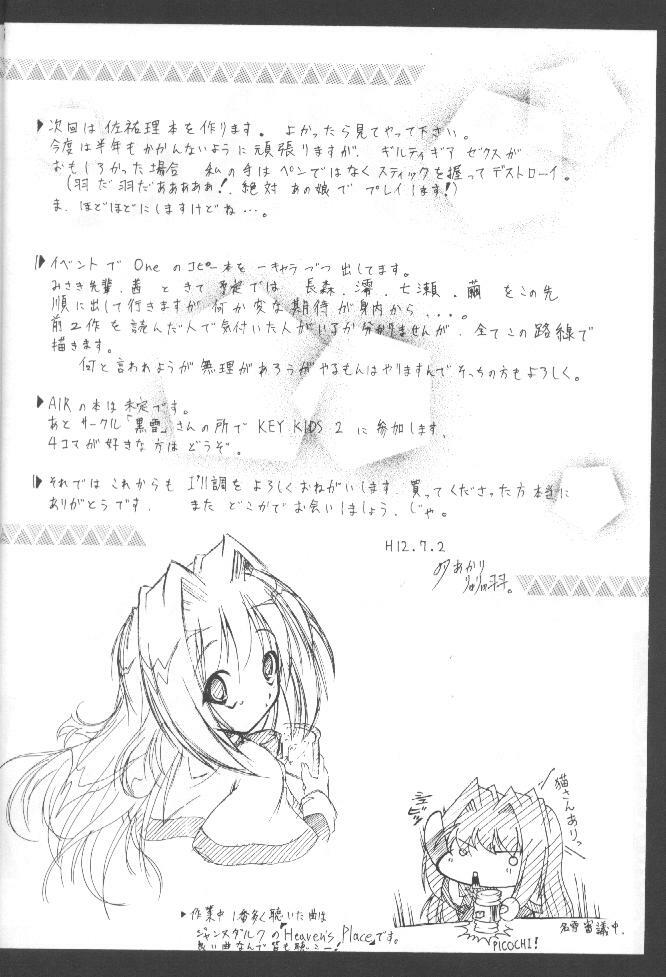 次回は佐祐理本を作ります。よかったら見てやって下さい。
今度は半年もかかんないように頑張りますが、ギルティギア ゼクスが
おもしろかった場合 私の手はペンではなくスティックを握ってデストローイ。
(羽だ羽だあああああ!絶対あの娘でプレイします!)
ま、ほどほどにしますけどね…。
イベントでOneのコピー本を一キャラづつ出してます。
みさき先輩、茜ときて予定では、長森、澪、七瀬、繭をこの先
順に出して行きますが何か変な期待が身内から...。
前2作を読んだ人で気付いた人がいるか分かりませんが、全てこの路線で
描きます。
何と言われようが無理があろうがやるもんはやりますんでそっちの方もよろしく。
AIRの本は未定です。
あとサークル「黒雪」さんの所でKEY KIDS 2に参加します。
4コマが好きな方はどうぞ。
それではこれからもI'll調をよろしくおねがいします。買ってくださった方本当に
ありがとうです。またどこかでお会いしましょう。じゃ。
H12.7.2
猫さんありっ
PICOCHI!
名雪審議中.
作業中1番多く聴いた曲は
ジャンヌダルクの「Heaven's Place」です。
良い曲なんで皆も聴こー!